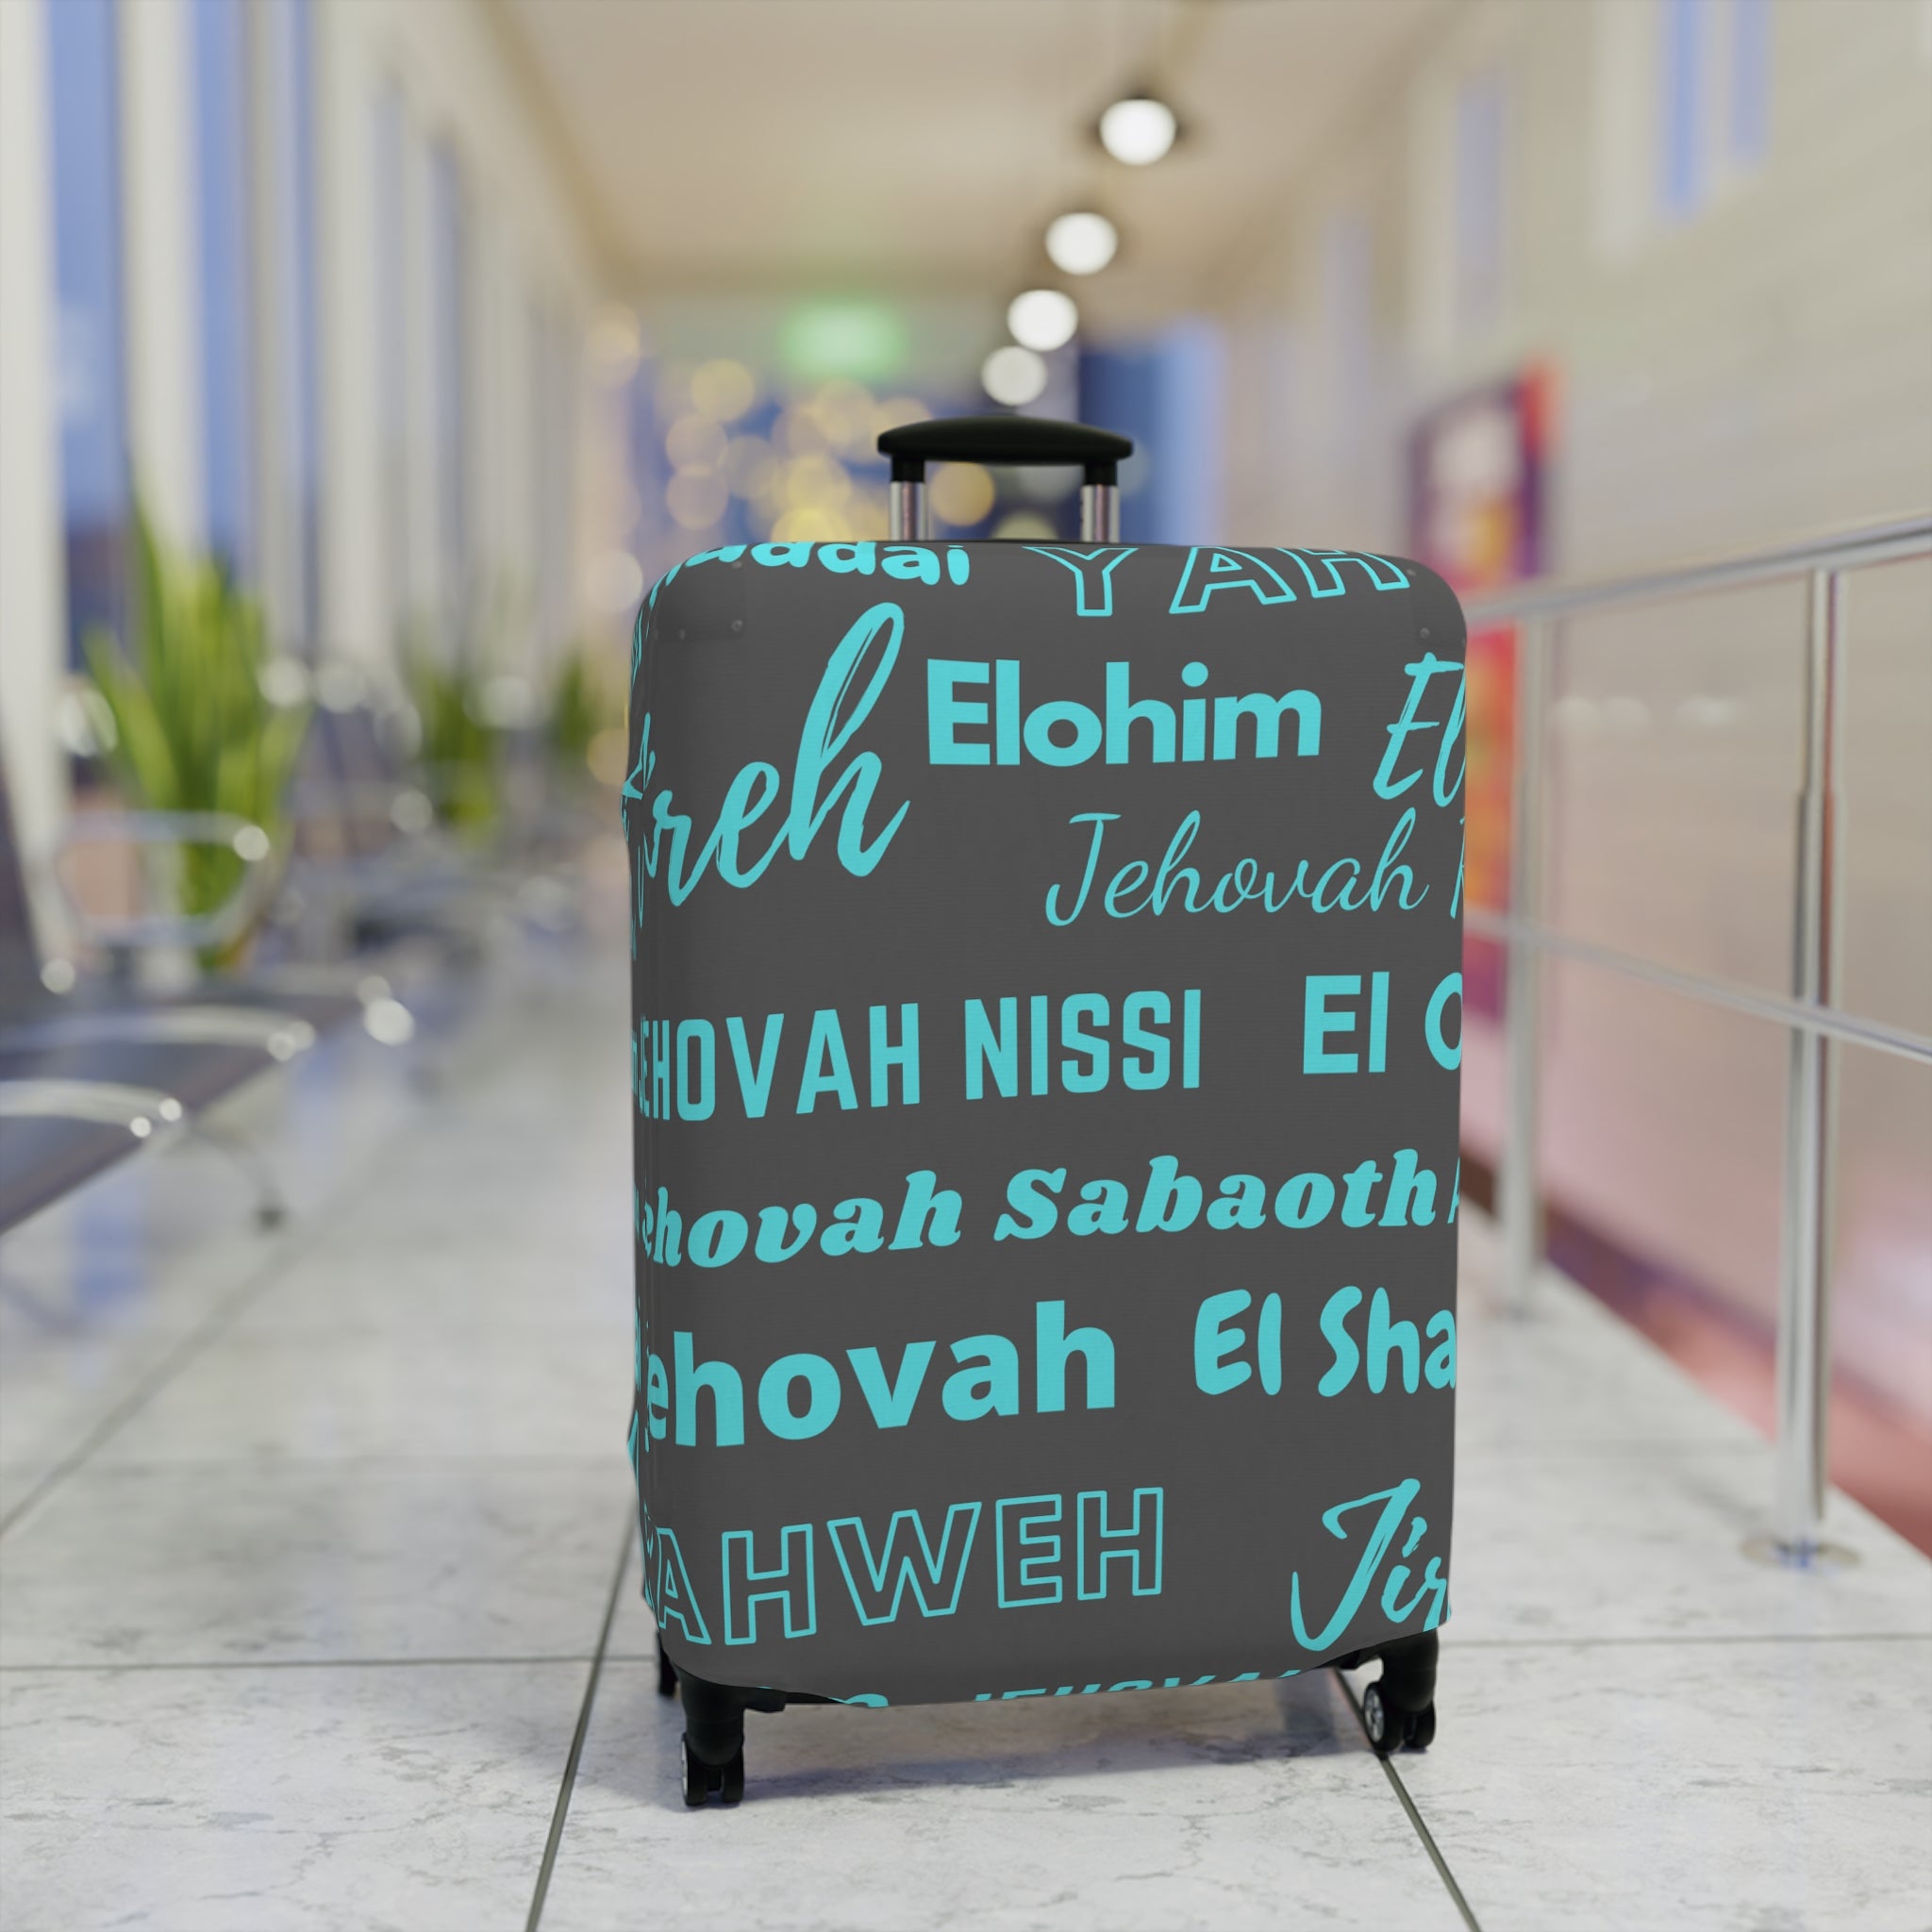 addai YAH
reh Elohim El
Jehovah
JEHOVAH NISSI El O
ehovah Sabaoth
ehovah El Sha
AHWEH Jir
JEHOVAH